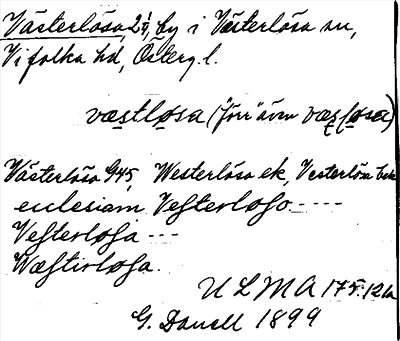 Västerlösa 2¼, by i Västerlösa sn,
Vifolka hd, Österg. l.
væstlo̱sa ("förr" även væsḷo̱sa)
Västerlösa 945, Westerlösa ek, Vesterlösa
ecclesiam Vesterloso ----
Vesterlosa ---
Wæstirlosa.
U L M A 175:12 1a
G. Danell 1899